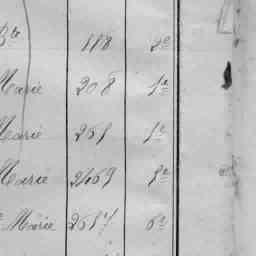 Bte 118 2e
Marie 208 1e
Marie 251 1e
Marie 2669 3e
Marie 2517 6e